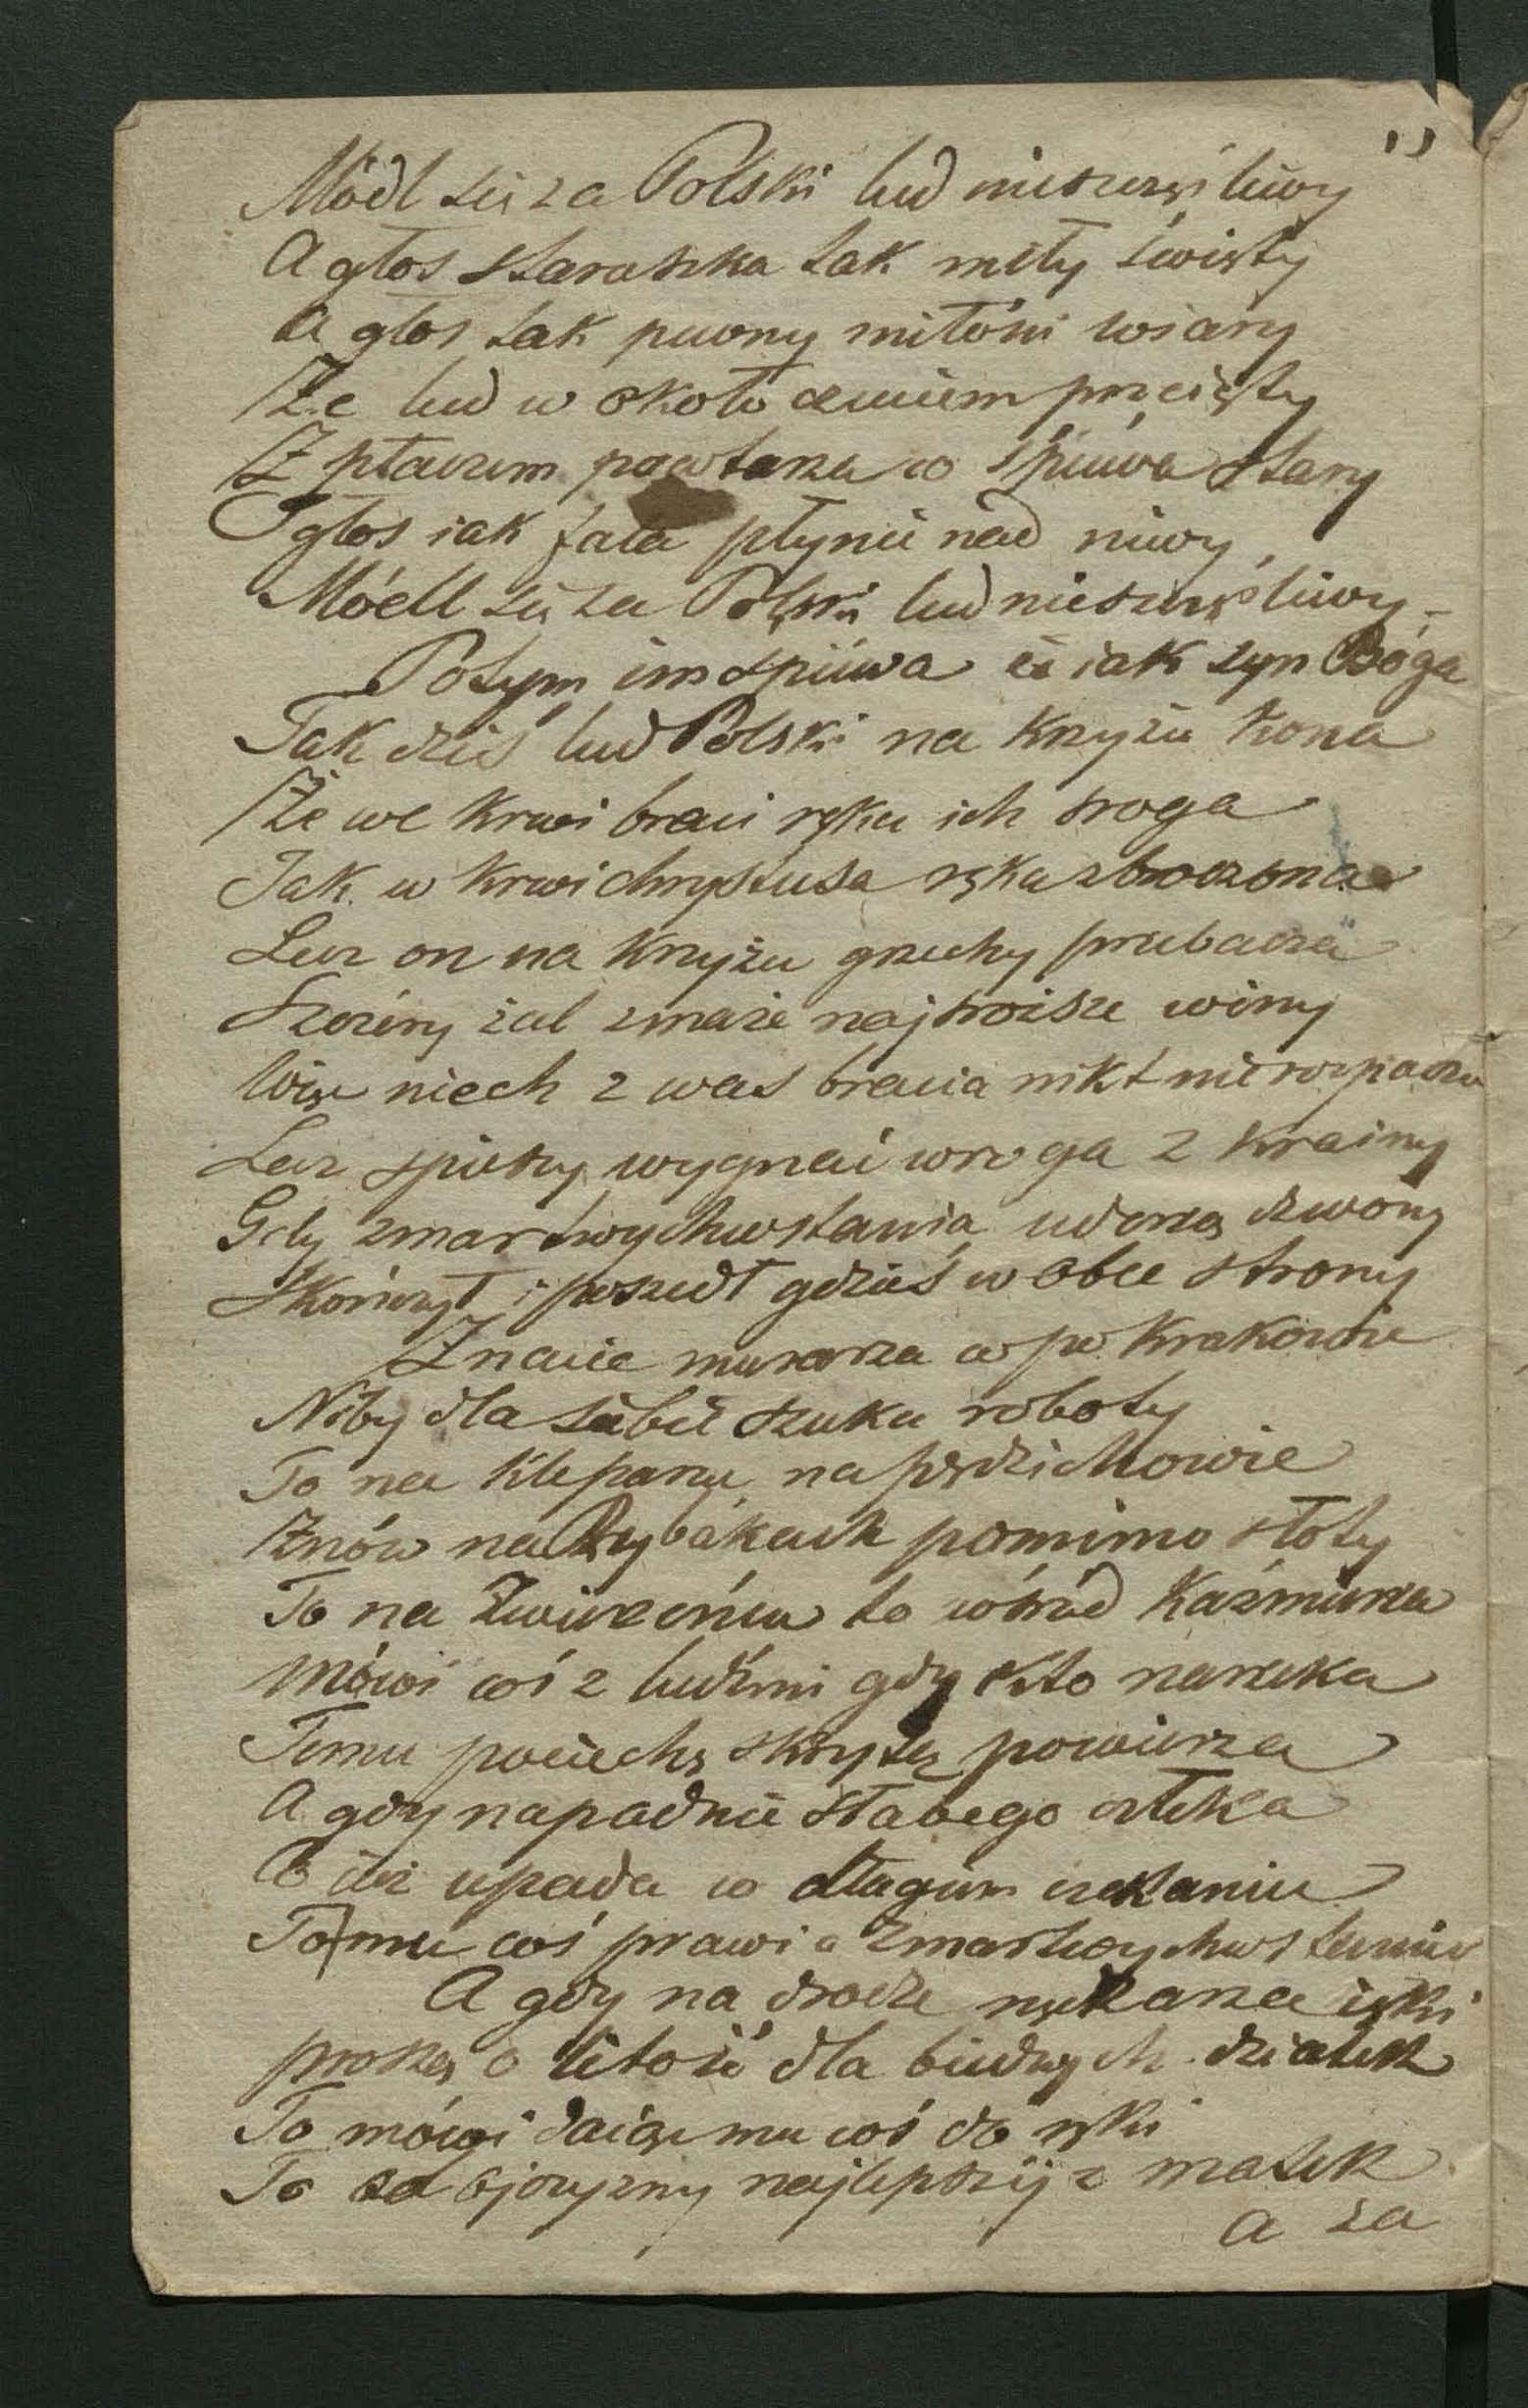 Módl się za Polski lud nieszczęśliwy
A głos staruszka tak miły święty
A głos tak pewny miłości wiary
Że lud w około czuciem przejęty
Z płaczem powtarza co śpiewa stary
I głos iak fala płynie nad niwy,
Módl się za Polski lud nieszczęśliwy –
Potym im spiéwa iż iak syn Boga
Tak dziś lud Polski na krzyżu kona
Że we krwi braci ręka ich sroga
Jak w krwi chrystusa ręka zbroczona
Lecz on na krzyżu grzechy przebacza
Szczéry żal zmaże najsroższe winy
Więc niech z was bracia nikt nie rozpacza
Lecz spieszy wygnać wroga z krainy
Gdy zmartwychwstania uderzą dzwony
Skończył i poszedł gdzieś w obce strony
Znacie murarza co po Krakowie
Niby dla siebie szuka roboty
To na Kleparzu na pędzichowie
Znów na Rybakach pomimo słoty
To na Zwierzeńcu to wśród Kaźmirza
Mówi coś z ludźmi gdy kto narzeka
Temu pociechę skrytą powierza
A gdy napadnie słabego człeka
Co iuż upada w długiem czekaniu
Tomu coś prawi o Zmartwychwstaniu
A gdy na drodze nędzarza ięki
proszą o litość dla biednych dziatek
To mówi daiąc mu coś do ręki
To od ojczyzny najlepszéj z matek
a za